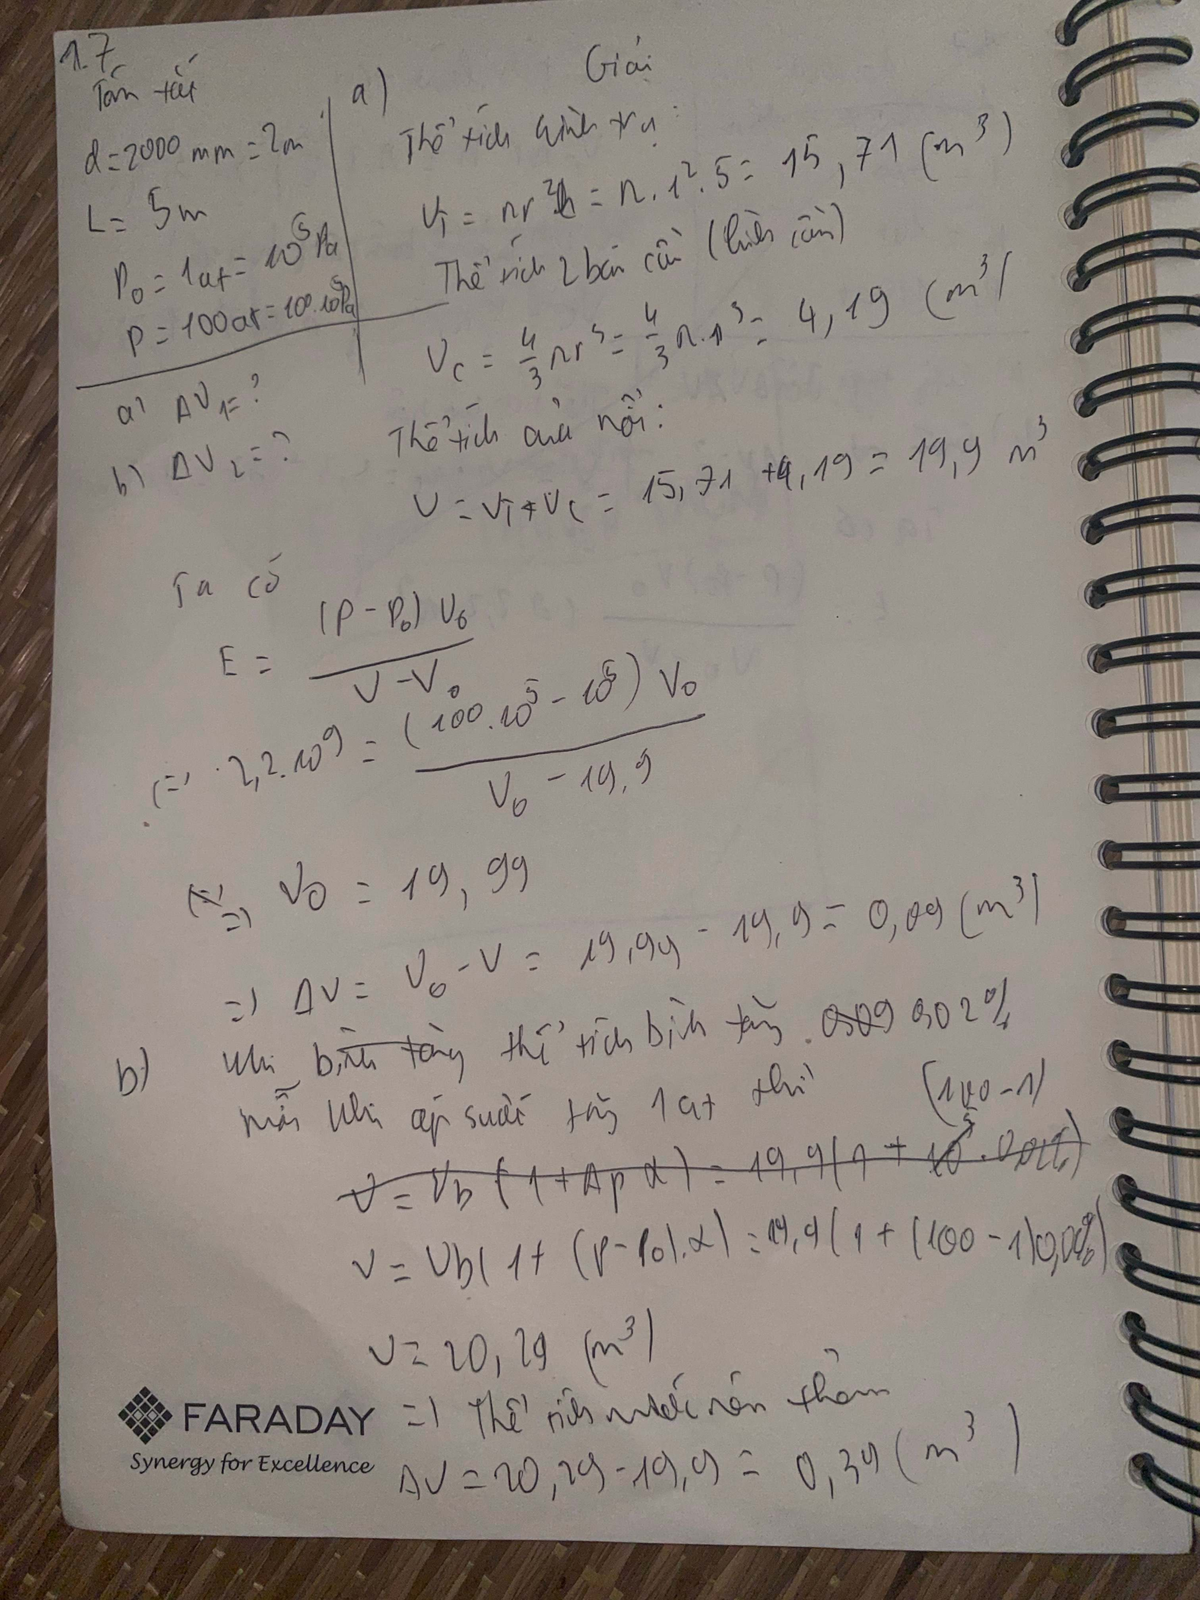 1.7
Tóm tắt
d = 2000 mm = 2m
L = 5m
P₀ = 1at = 10⁵ Pa
P = 100at = 100.10⁵Pa
a) ΔV₁ = ?
b) ΔV₂ = ?
Giải
a)
Thể tích hình trụ:
V_T = πr²h = π.1².5 = 15,71 (m³)
Thể tích 2 bán cầu (hình cầu)
V_c = 4/3 πr³ = 4/3 π.1³ = 4,19 (m³)
Thể tích của nồi:
V = V_T + V_c = 15,71 + 4,19 = 19,9 m³
Ta có
E = (P - P₀) V₀ / V - V₀
(=) 2,2.10⁹ = (100.10⁵ - 10⁵) V₀ / V₀ - 19,9
=) V₀ = 19,99
=) ΔV = V₀ - V = 19,99 - 19,9 = 0,09 (m³)
b) Khi bình tăng thể tích bình tăng 0,02%
mỗi khi áp suất tăng 1at thì
(100-1)
V = Vb (1 + Δp α) = 19,9 (1 + 10⁵. 0,02%)
V = Vb( 1 + (P - P₀).α) = 19,9 (1 + (100 - 1)0,02%)
V = 20,29 (m³)
=) Thể tích nước nén thêm
ΔV = 20,29 - 19,9 = 0,39 (m³)
FARADAY
Synergy for Excellence